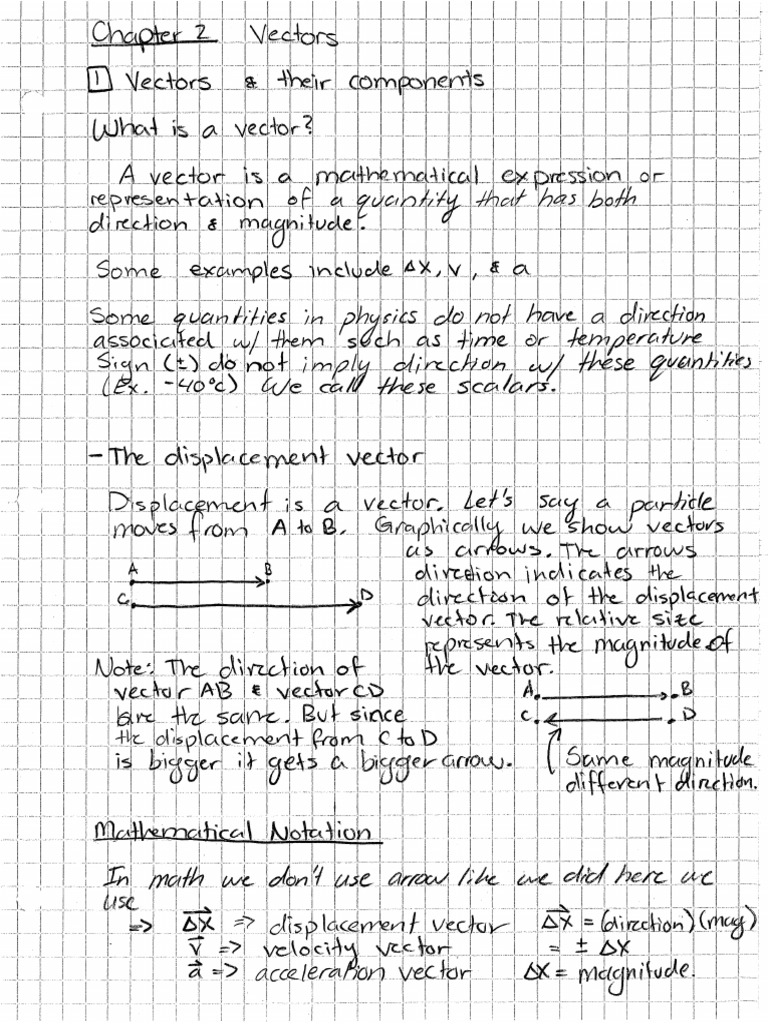 Chapter 2 Vectors
1 Vectors & their components
What is a vector?
A vector is a mathematical expression or
representation of a quantity that has both
direction & magnitude.
Some examples include Δx, v, & a
Some quantities in physics do not have a direction
associated w/ them such as time or temperature
Sign (±) do not imply direction w/ these quantities
(Ex. -40°C) We call these scalars.
- The displacement vector
Displacement is a vector. Let's say a particle
moves from A to B. Graphically we show vectors
as arrows. The arrows
direction indicates the
direction of the displacement
vector. The relative size
represents the magnitude of
the vector.
A B
C D
Note: The direction of
vector AB & vector CD
are the same. But since
the displacement from C to D
is bigger it gets a bigger arrow.
A B
C D
Same magnitude
different direction.
Mathematical Notation
In math we don't use arrow like we did here we
use
=> Δx⃗ => displacement vector Δx⃗ = (direction)(mag)
v⃗ => velocity vector = ± Δx
a⃗ => acceleration vector Δx = magnitude.